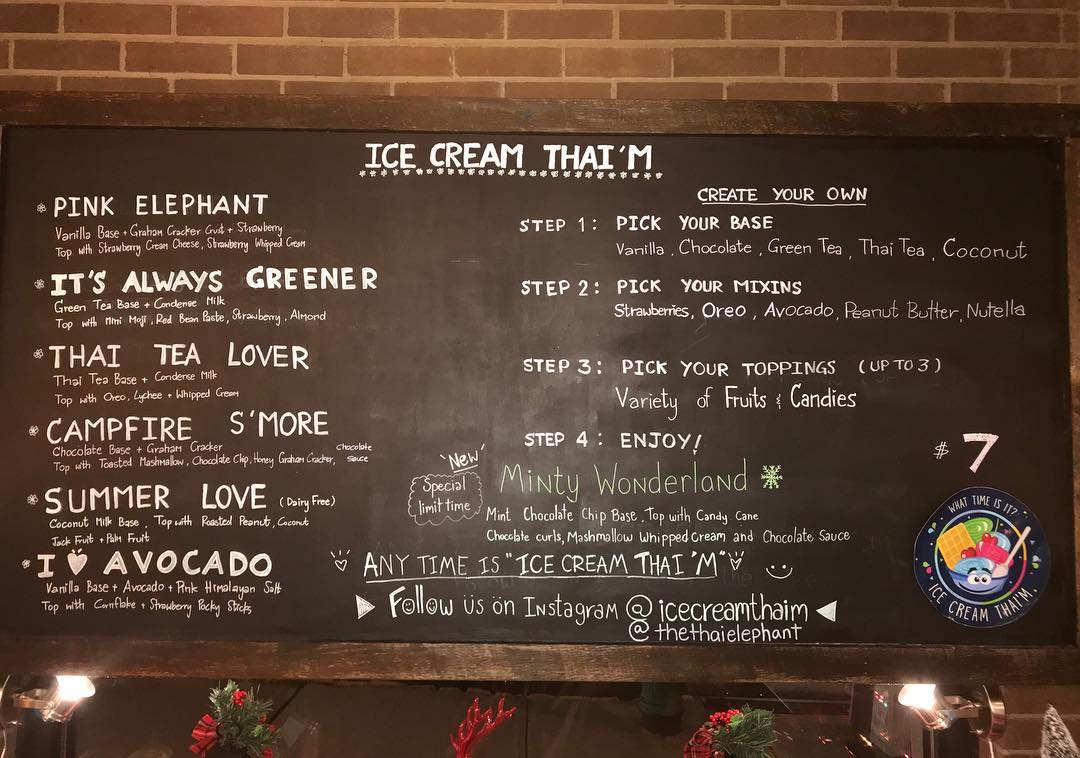 ICE CREAM THAI'M
PINK ELEPHANT
Vanilla Base + Graham Cracker Crust + Strawberry
Top with Strawberry Cream Cheese, Strawberry Whipped Cream
IT'S ALWAYS GREENER
Green Tea Base + Condense Milk
Top with Mini Moji, Red Bean Paste, Strawberry, Almond
THAI TEA LOVER
Thai Tea Base + Condense Milk
Top with Oreo, Lychee + Whipped Cream
CAMPFIRE S'MORE
Chocolate Base + Graham Cracker
Top with Toasted Mashmallow, Chocolate Chip, Honey Graham Cracker, Chocolate Sauce
SUMMER LOVE (Dairy Free)
Coconut Milk Base, Top with Roasted Peanut, Coconut
Jack Fruit + Palm Fruit
I ♥ AVOCADO
Vanilla Base + Avocado + Pink Himalayan Salt
Top with Cornflake + Strawberry Pocky Sticks
CREATE YOUR OWN
STEP 1: PICK YOUR BASE
Vanilla, Chocolate, Green Tea, Thai Tea, Coconut
STEP 2: PICK YOUR MIXINS
Strawberries, Oreo, Avocado, Peanut Butter, Nutella
STEP 3: PICK YOUR TOPPINGS (UP TO 3)
Variety of Fruits & Candies
STEP 4: ENJOY!
$7
'New'
Special
limit time
Minty Wonderland
Mint Chocolate Chip Base, Top with Candy Cane
Chocolate curls, Mashmallow Whipped Cream and Chocolate Sauce
ANY TIME IS "ICE CREAM THAI'M"
Follow us on Instagram @icecreamthaim
@thethaielephant
WHAT TIME IS IT?
ICE CREAM THAI'M